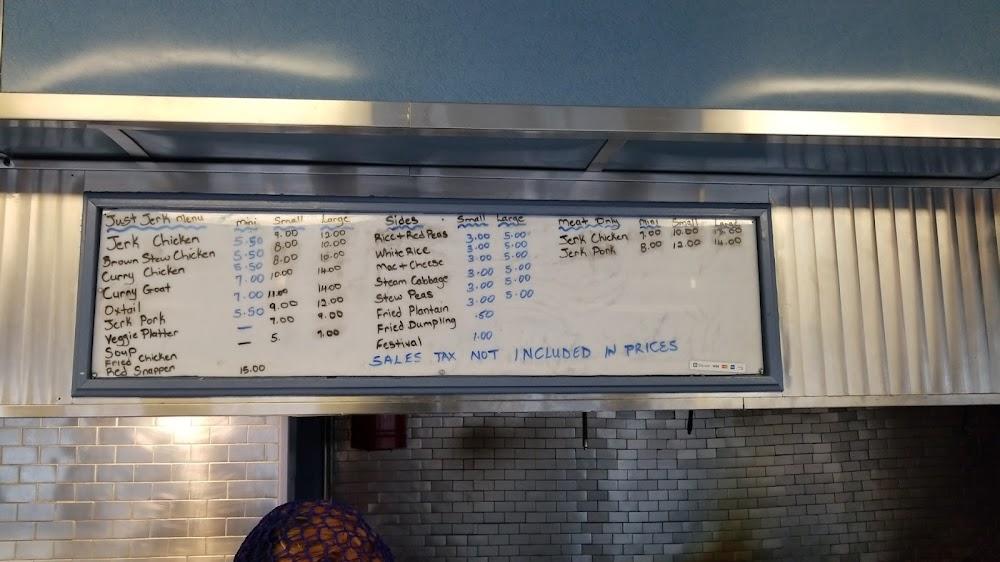 Just Jerk Menu mini Small Large
Jerk Chicken 5.50 9.00 12.00
Brown Stew Chicken 5.50 8.00 10.00
Curry Chicken 5.50 8.00 10.00
Curry Goat 7.00 10.00 14.00
Oxtail 7.00 11.00 14.00
Jerk Pork 5.50 9.00 12.00
Veggie Platter — 7.00 9.00
Soup — 5. 7.00
Fried Chicken
Red Snapper 15.00
Sides Small Large
Rice + Red Peas 3.00 5.00
White Rice 3.00 5.00
Mac + Cheese 3.00 5.00
Steam Cabbage 3.00 5.00
Stew Peas 3.00 5.00
Fried Plantain 3.00 5.00
Fried Dumpling .50
Festival 1.00
Meat Only Mini Small Large
Jerk Chicken 7.00 10.00
Jerk Pork 8.00 12.00 14.00
SALES TAX NOT INCLUDED IN PRICES